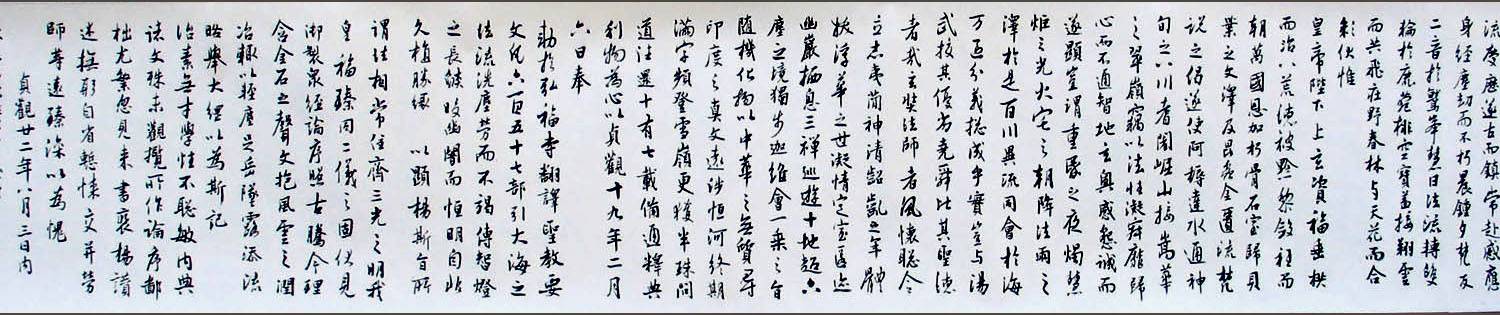 流慶歷遂古而鎮常赴感應
身經塵劫而不朽晨鍾夕梵交
二音於鷲峯慧日法流轉雙
輪於鹿菀排空寶蓋接翔雲
而共飛莊野春林与天花而合
彩伏惟
皇帝陛下上玄資福垂拱
而治八荒德被黔黎斂衽而
朝萬國恩加朽骨石室歸貝
葉之文澤及昆蟲金匱流梵
說之偈遂使阿耨達水通神
旬之八川耆闍崛山接嵩華
之翠嶺竊以法性凝寂靡歸
心而不通智地玄奧感懇誠而
遂顯豈謂重昏之夜燭慧
炬之光火宅之朝降法雨之
澤於是百川異流同會於海
万區分義揔成乎實豈与湯
武校其優劣堯舜比其聖德
者哉玄奘法師者夙懷聰令
立志夷簡神清齠齔之年體
拔浮華之世凝情定室匿迹
幽巖栖息三禪巡遊十地超六
塵之境獨步迦維會一乘之旨
随機化物以中華之無質尋
印度之真文遠涉恒河終期
滿字頻登雪嶺更獲半珠問
道法還十有七載備通釋典
利物為心以貞觀十九年二月
六日奉
勑於弘福寺翻譯聖教要
文凡六百五十七部引大海之
法流洗塵勞而不竭傳智燈
之長焰皎幽闇而恒明自非
久植勝緣 以顯揚斯旨所
謂法相常住齊三光之明我
皇福臻同二儀之固伏見
御製衆經論序照古騰今理
含金石之聲文抱風雲之潤
治輒以輕塵足岳墜露添流
略舉大綱以為斯記
治素無才學性不聰敏內典
諸文殊未觀攬所作論序鄙
拙尤繁忽見来書褒揚讃
述撫躬自省慙悚交并勞
師等遠臻深以為愧
貞觀廿二年八月三日內